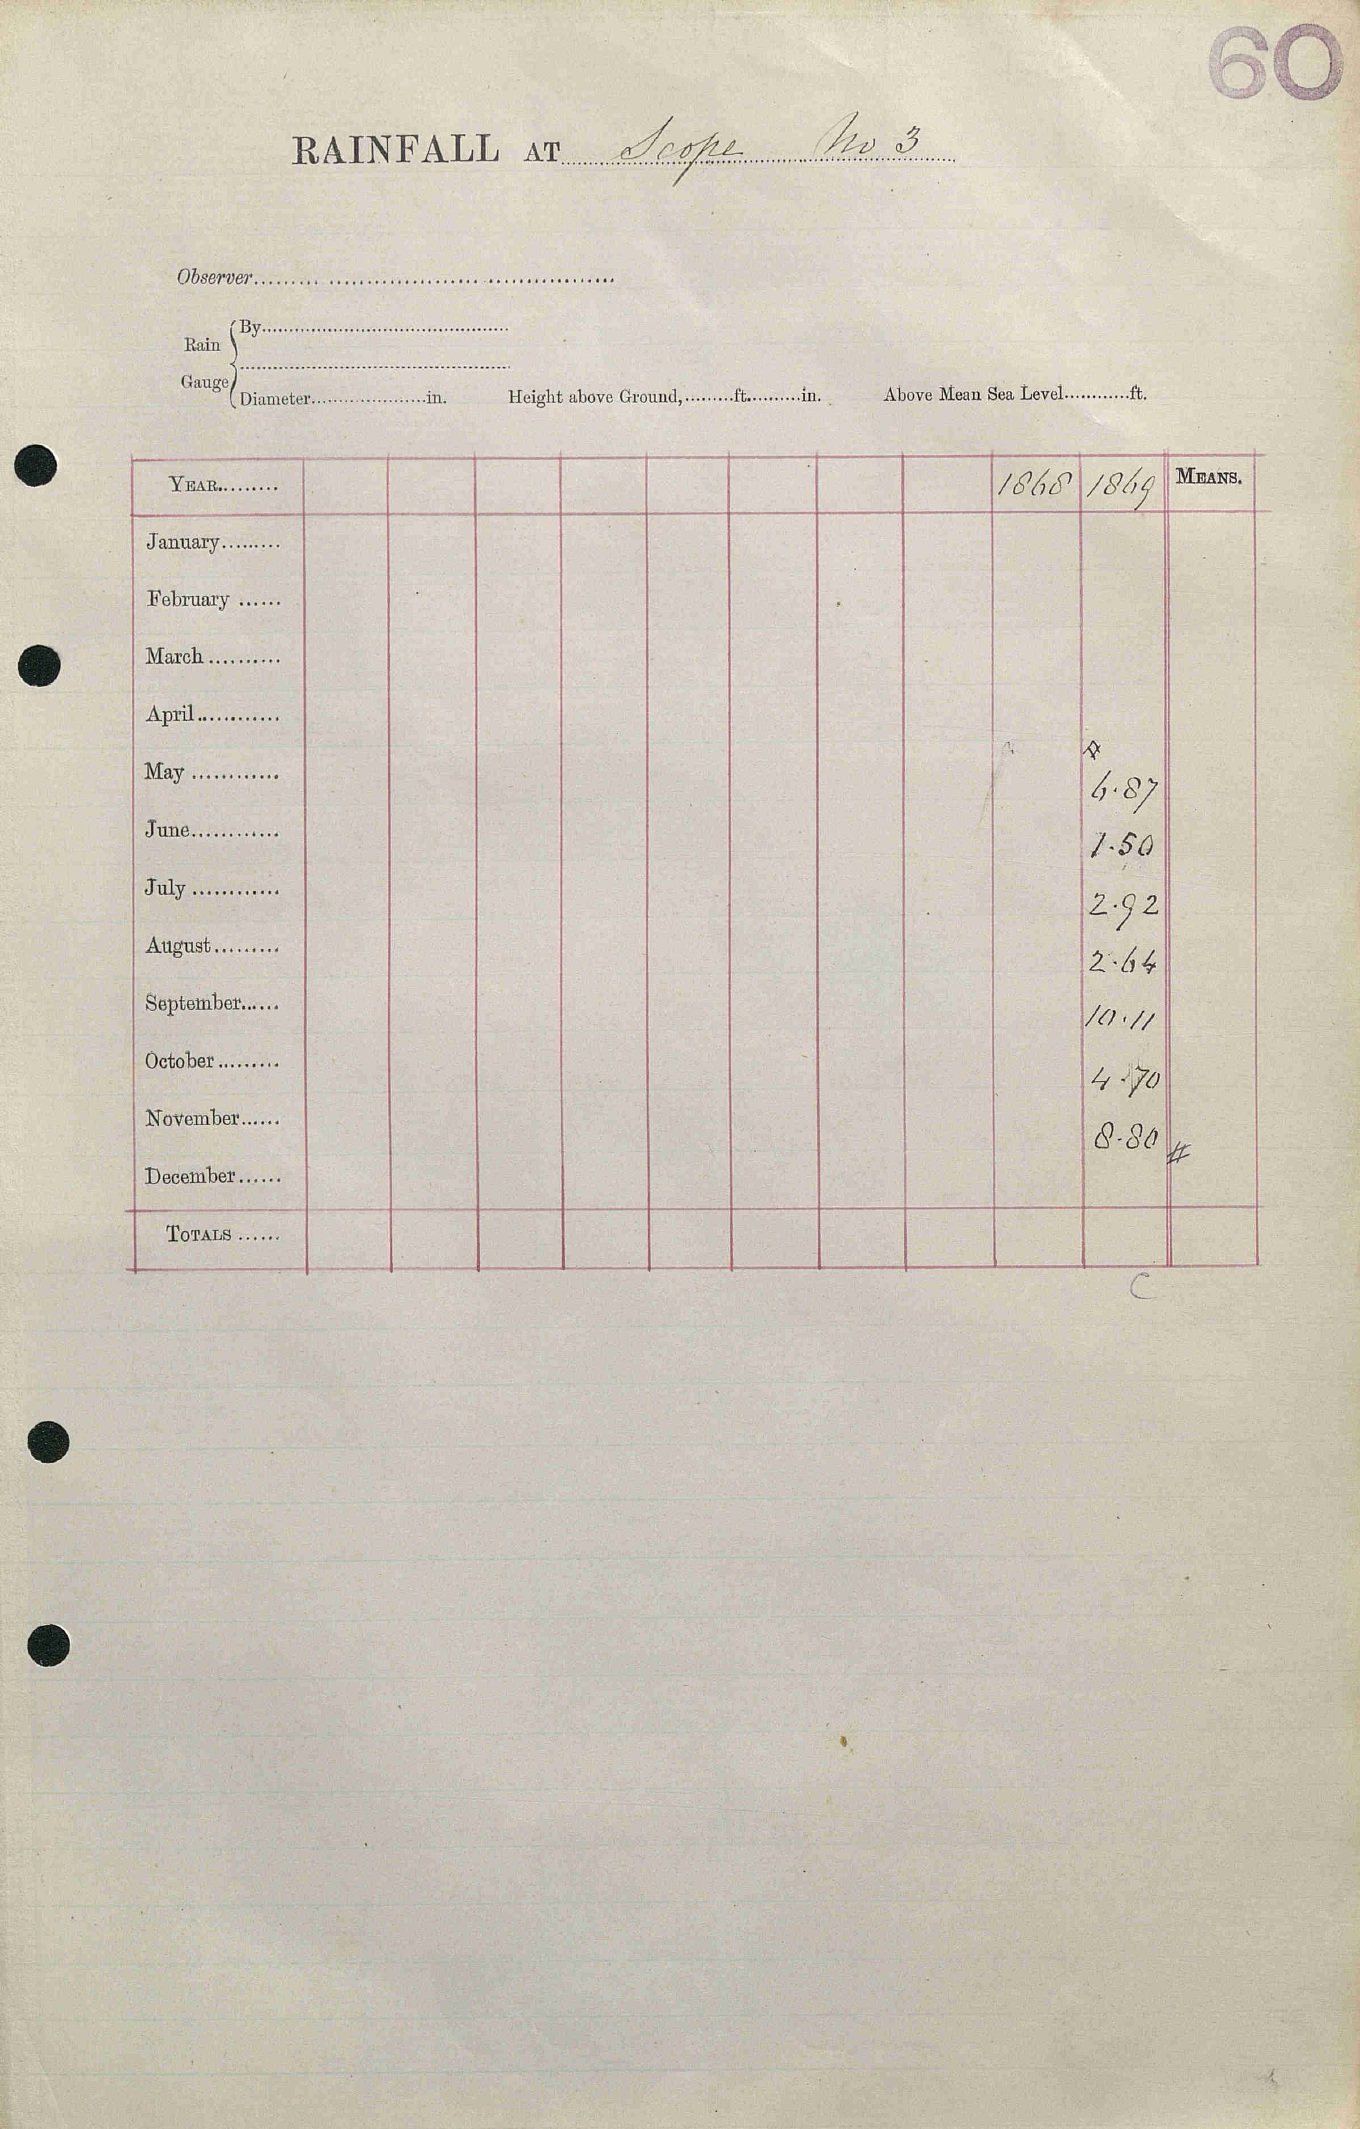 60
RAINFALL AT Scope No 3
Observer
Rain Gauge
By
Diameter in. Height above Ground, ft. in. Above Mean Sea Level ft.
YEAR 1868 1869 MEANS.
January
February
March
April
May
6.87
June
1.50
July
2.92
August
2.64
September
10.11
October
4.70
November
8.80 #
December
TOTALS
C